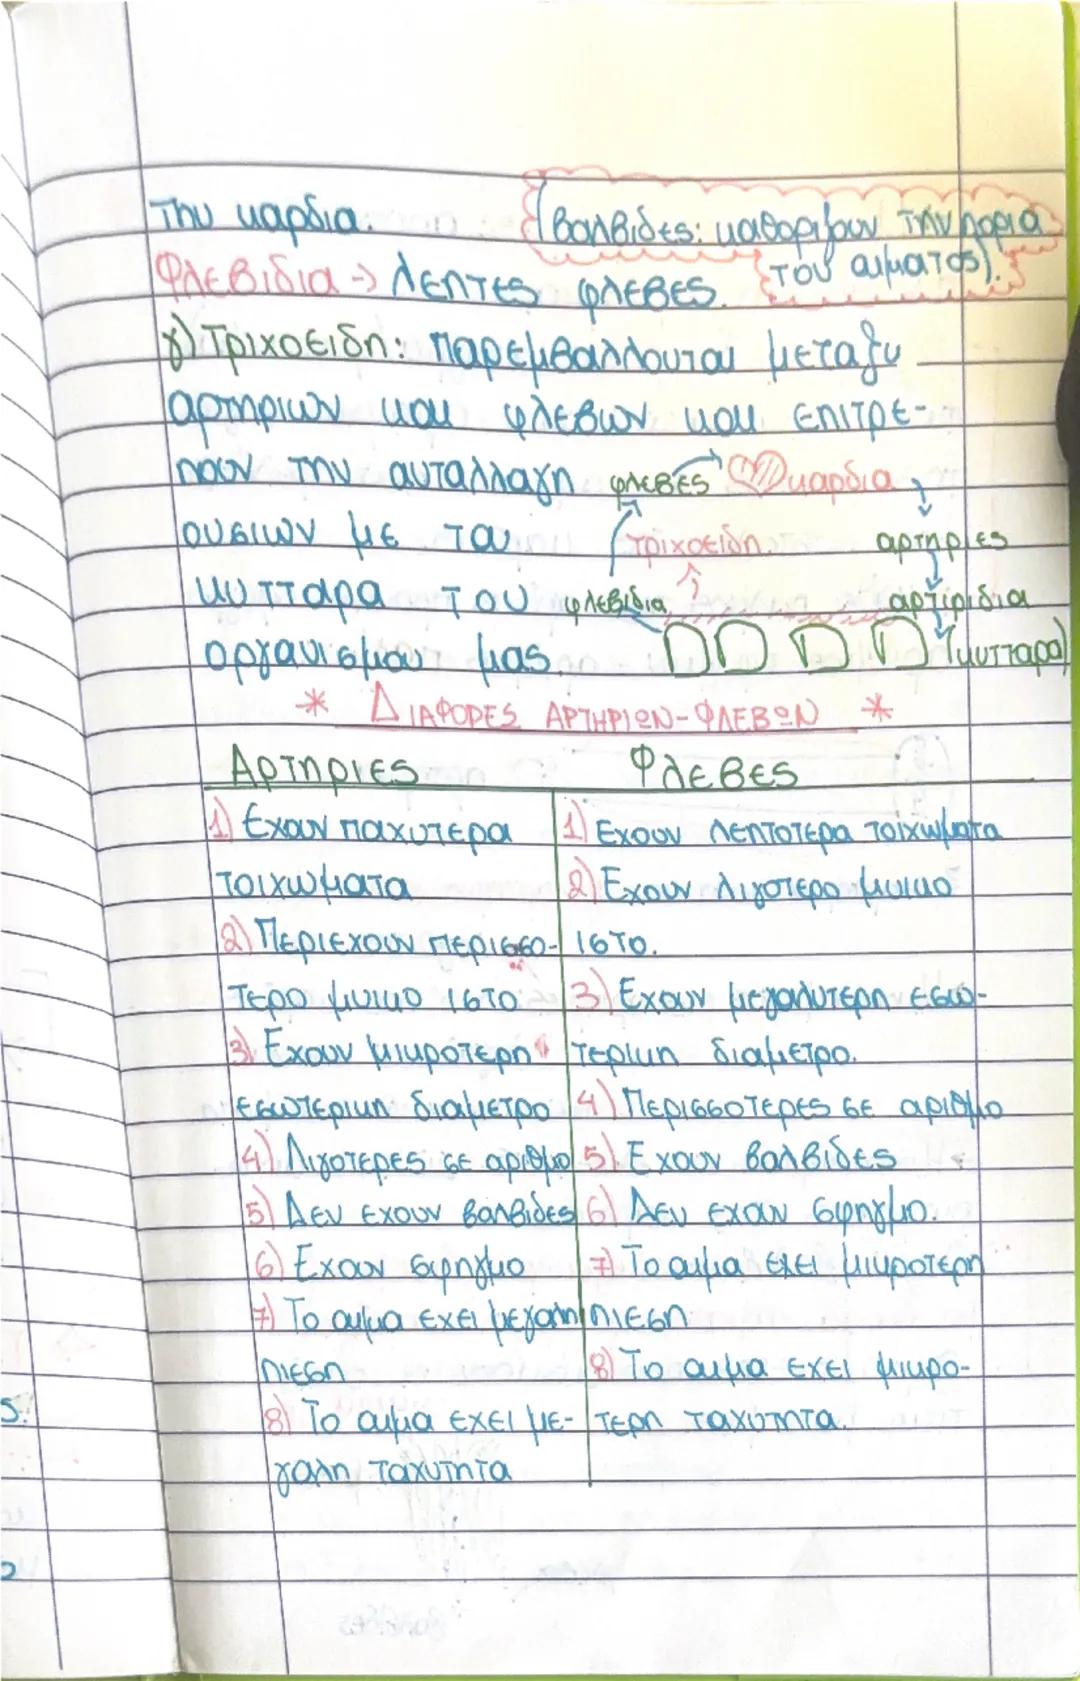 την καρδια. (βαλβιδες: καθοριζουν την πορια
του αιματος).
Φλεβιδια → λεπτες φλεβες.
γ) Τριχοειδη: παρεμβαλλονται μεταξυ
αρτηριων και φλεβων και επιτρε-
πουν την ανταλλαγη
ουσιων με τα
κυτταρα του
οργανισμου μας.
φλεβες καρδια
τριχοειδη. αρτηριες
φλεβιδια αρτιριδια
(κυτταρα)
* ΔΙΑΦΟΡΕΣ ΑΡΤΗΡΙΩΝ-ΦΛΕΒΩΝ *
Αρτηριες
1) Εχουν παχυτερα
τοιχωματα
2) Περιεχουν περισσο-
τερο μυικο ιστο
3) Εχουν μικροτερη
εσωτερικη διαμετρο
4) Λιγοτερες σε αριθμο
5) Δεν εχουν βαλβιδες
6) Εχουν σφηγμο
7) Το αιμα εχει μεγαλη
πιεση
8) Το αιμα εχει με-
γαλη ταχυτητα
Φλεβες
1) Εχουν λεπτοτερα τοιχωματα
2) Εχουν λιγοτερο μυικο
ιστο.
3) Εχουν μεγαλυτερη εσω-
τερικη διαμετρο.
4) Περισσοτερες σε αριθμο
5) Εχουν βαλβιδες
6) Δεν εχουν σφηγμο.
7) Το αιμα εχει μικροτερη
πιεση
8) Το αιμα εχει μικρο-
τερη ταχυτητα.